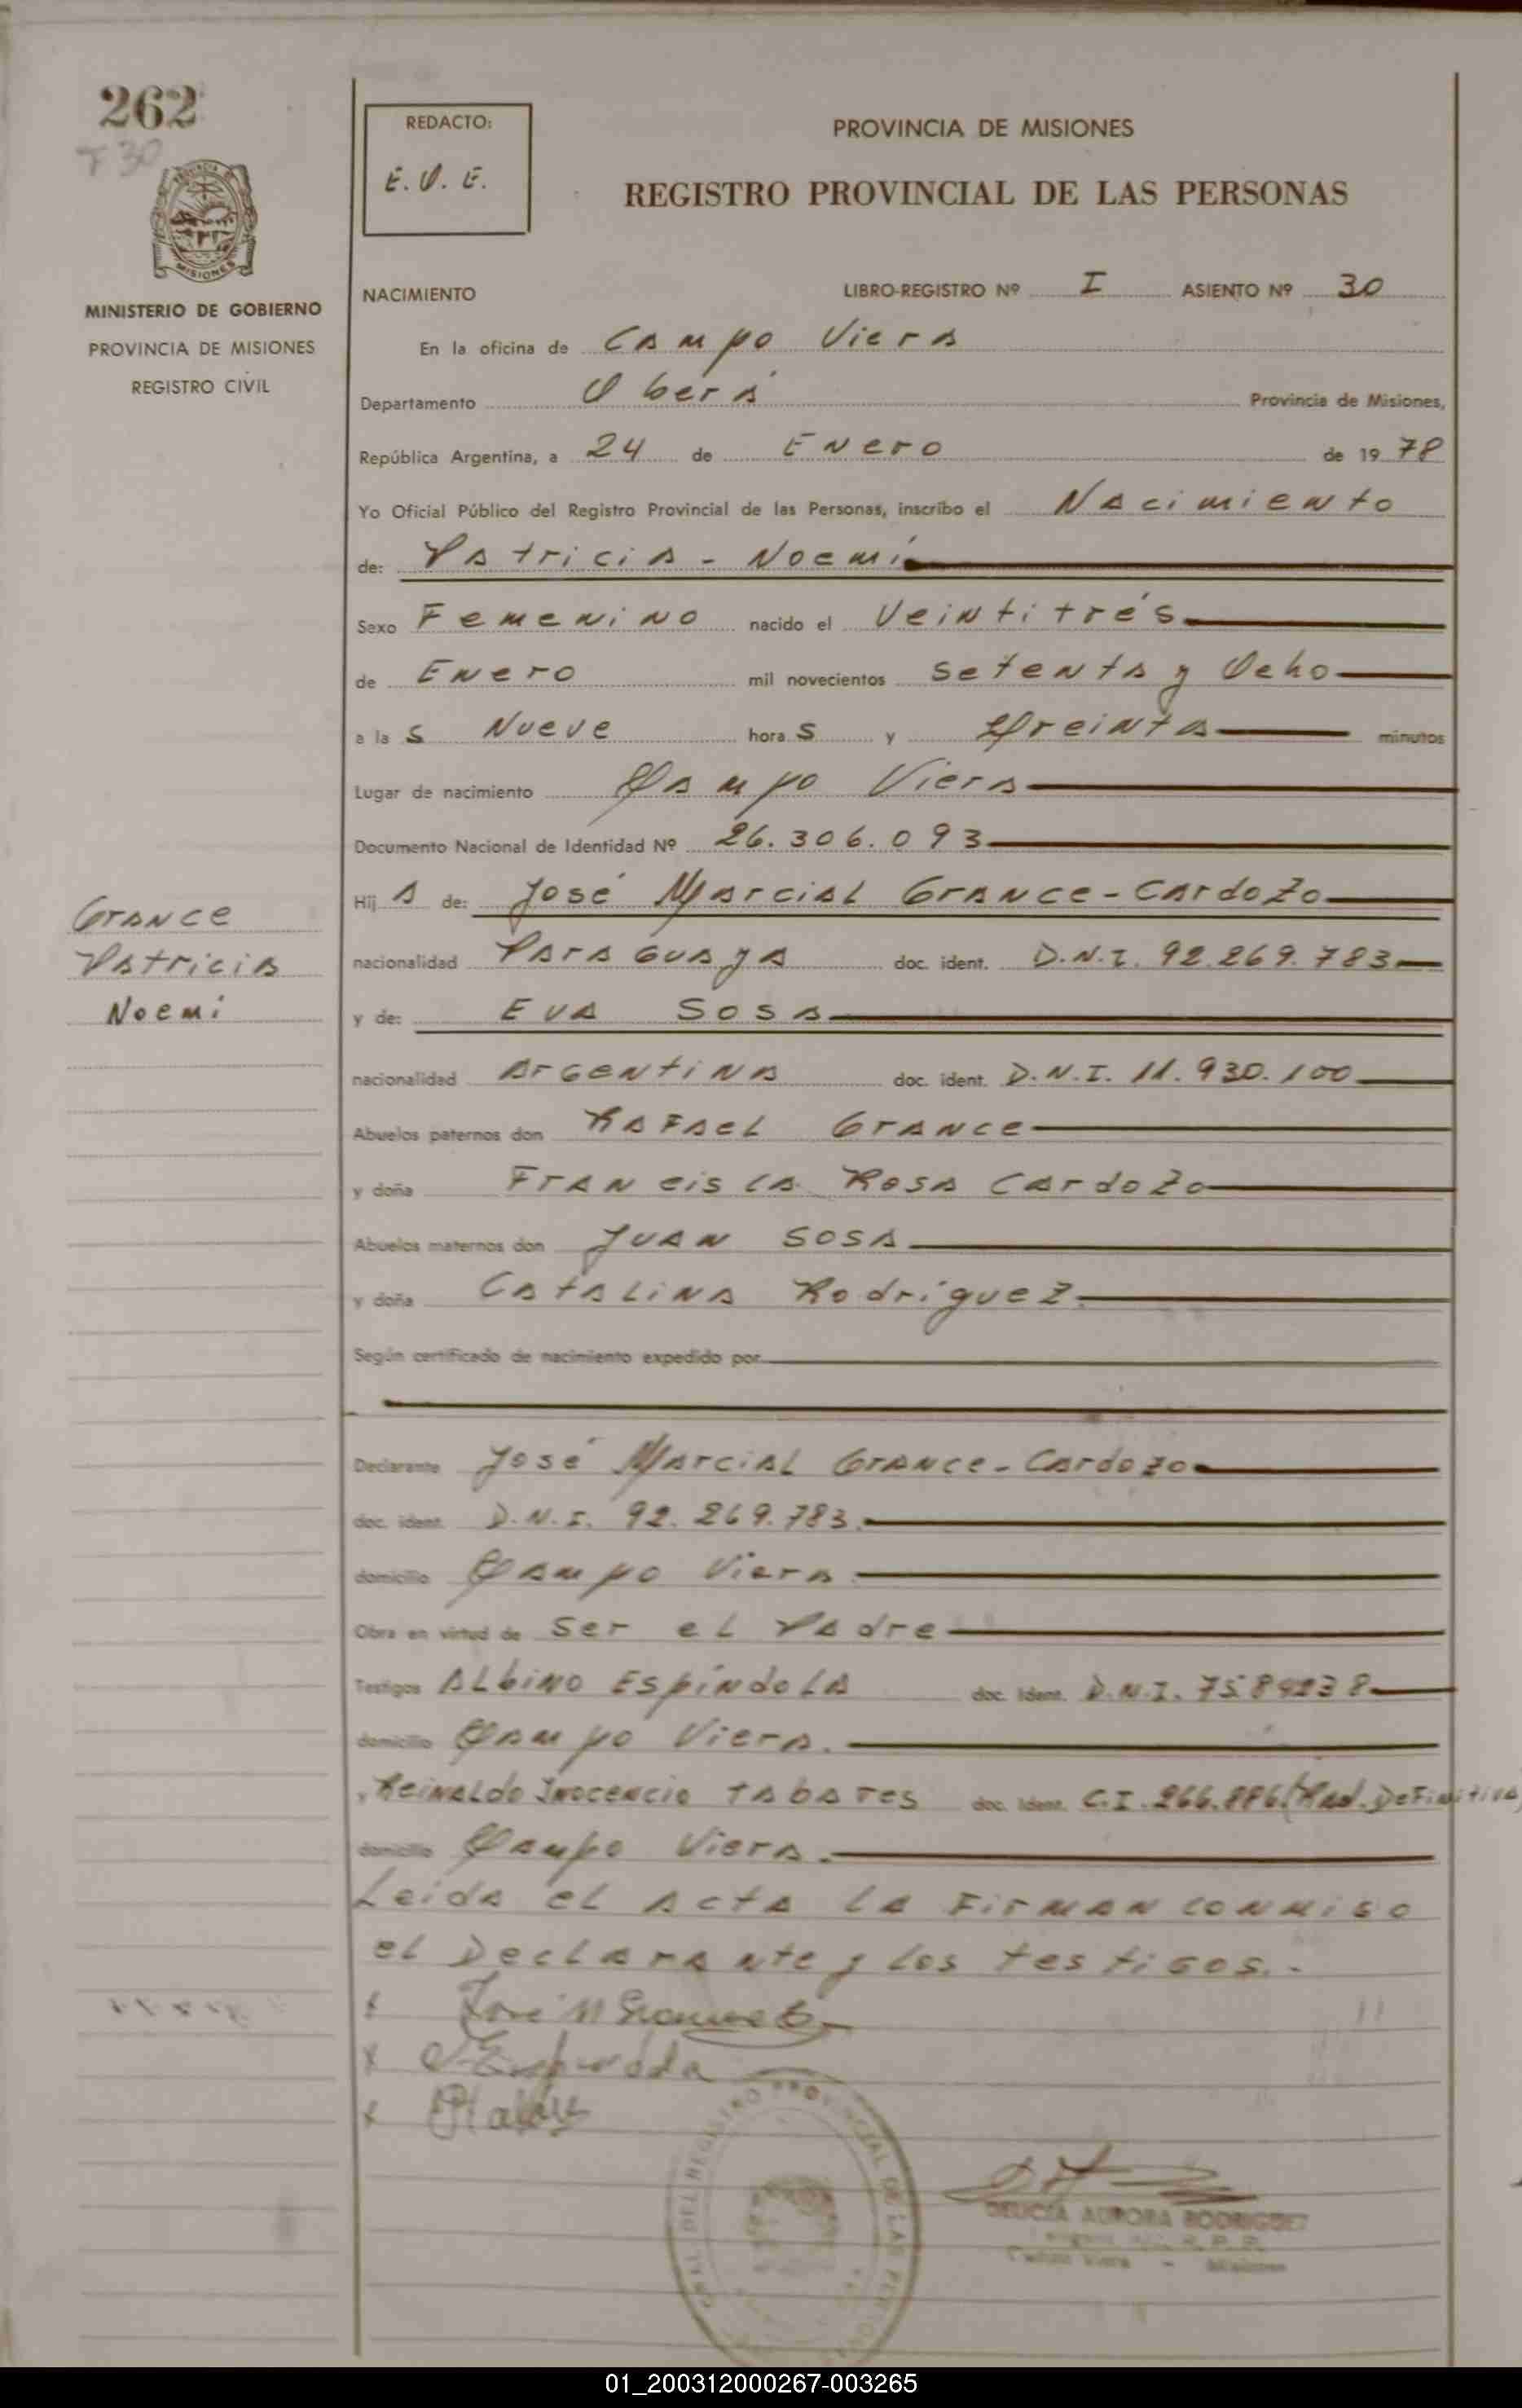 262
F 30
REDACTO:
E.V.E.
PROVINCIA DE MISIONES
REGISTRO PROVINCIAL DE LAS PERSONAS
MISIONES
MINISTERIO DE GOBIERNO
PROVINCIA DE MISIONES
REGISTRO CIVIL
NACIMIENTO LIBRO-REGISTRO Nº I ASIENTO Nº 30
En la oficina de Campo Viera
Departamento Oberá Provincia de Misiones,
República Argentina, a 24 de Enero de 1978
Yo Oficial Público del Registro Provincial de las Personas, inscribo el Nacimiento
de: Patricia - Noemí
Sexo Femenino nacido el Veintitrés
de Enero mil novecientos setenta y Ocho
a las Nueve horas y treinta minutos
Lugar de nacimiento Campo Viera
Documento Nacional de Identidad Nº 26.306.093
Hija de: José Marcial Grance - Cardozo
Grance
Patricia
Noemi
nacionalidad Paraguaya doc. ident. D.N.I. 92.269.783
y de: Eva Sosa
nacionalidad Argentina doc. ident. D.N.I. 11.930.100
Abuelos paternos don Rafael Grance
y doña Francisca Rosa Cardozo
Abuelos maternos don Juan Sosa
y doña Catalina Rodríguez.
Según certificado de nacimiento expedido por
Declarante José Marcial Grance - Cardozo
doc. ident. D.N.I. 92.269.783.
domicilio Campo Viera.
Obra en virtud de ser el Padre
Testigos Albino Espíndola doc. ident. D.N.I. 7584238
domicilio Campo Viera.
y Reinaldo Inocencio Tabares doc. ident. C.I. 266.886 (Rad. Definitiva)
domicilio Campo Viera.
Leida el acta la firman conmigo
el Declarante y los testigos.-
x José M Grance C
x Espindola
x
DELICIA AURORA RODRIGUEZ
R. P. P.
Campo Viera - Misiones
DEL REGISTRO PROVINCIAL DE LAS PERSONAS
01_200312000267-003265